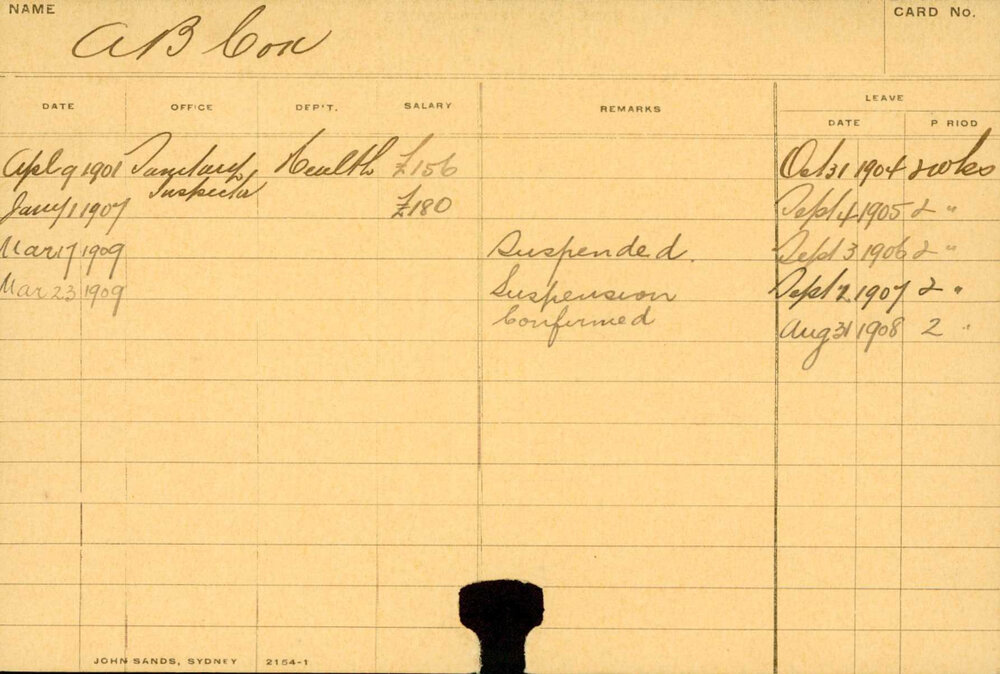 NAME
CARD No.
A B Cox
DATE OFFICE DEP'T. SALARY REMARKS LEAVE
DATE P RIOD
Apl 9 1901 Sanitary Health £156 Oct 31 1904 2 wks
Inspector
Jany 1 1907 £180 Sept 4 1905 2 "
Mar 17 1909 Suspended. Sept 3 1906 2 "
Mar 23 1909 Suspension Sept 2 1907 2 "
Confirmed Aug 31 1908 2 "
JOHN SANDS, SYDNEY 2154-1